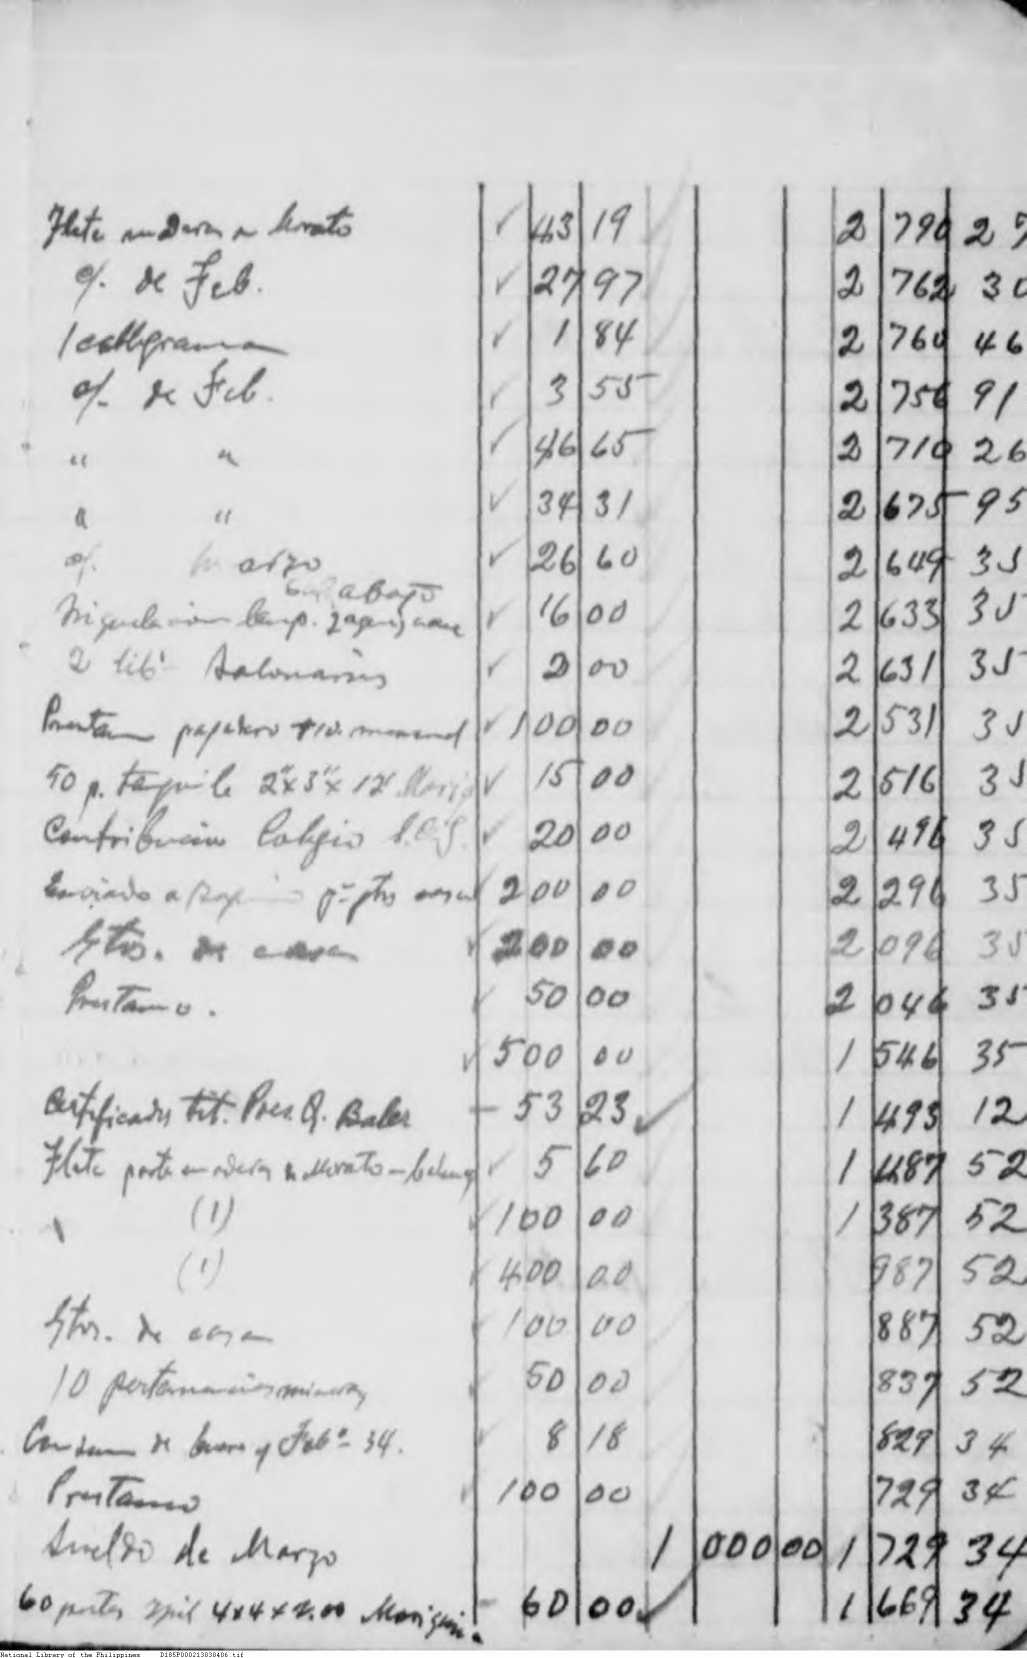 Flete maderas a Morato ✓ 43 19 2 790 27
c/. de Feb. ✓ 27 97 2 762 30
1 cablegrama ✓ 1 84 2 760 46
c/. de Feb. ✓ 3 55 2 756 91
" " ✓ 46 65 2 710 26
" " ✓ 34 31 2 675 95
c/. Marzo ✓ 26 60 2 649 35
abajo
✓ 16 00 2 633 35
2 lib. talonarios ✓ 2 00 2 631 35
Prestamo pagadero 10 mensual ✓ 100 00 2 531 35
50 p. taquile 2"x3"x12' ✓ 15 00 2 516 35
Contribucion Colegio ✓ 20 00 2 496 35
Enviado a 200 00 2 296 35
Gtos. de casa ✓ 200 00 2 096 35
Prestamo. ✓ 50 00 2 046 35
✓ 500 00 1 546 35
Certificados tit. Pres. Q. Baler - 53 23 ✓ 1 493 12
Flete porte maderas a Morato ✓ 5 60 1 487 52
(1) ✓ 100 00 1 387 52
(1) ✓ 400 00 987 52
Gtos. de casa 100 00 887 52
10 pertenencias mineras 50 00 837 52
Consumo de Enero y Feb. 34. 8 18 829 34
Prestamo 100 00 729 34
Sueldo de Marzo 1 000 00 1 729 34
60 postes ipil 4x4x2.00 - 60 00 ✓ 1 669 34
National Library of the Philippines D185P000213030406.tif